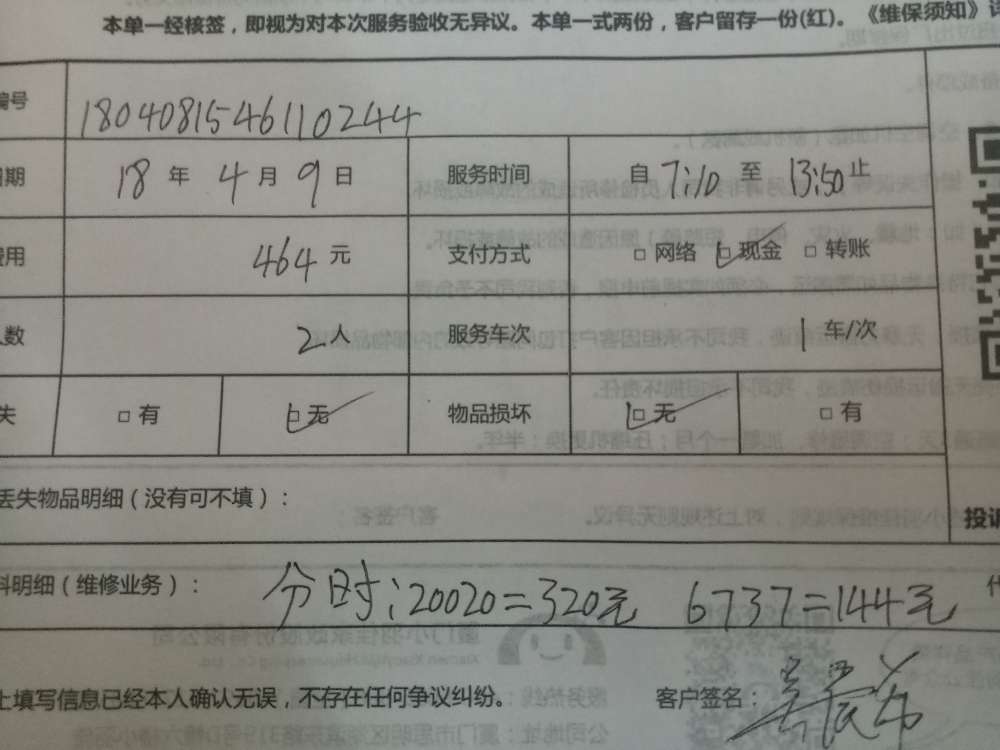 本单一经核签，即视为对本次服务验收无异议。本单一式两份，客户留存一份(红)。《维保须知》
编号 1804081546110244
日期 18 年 4 月 9 日 服务时间 自 7:10 至 13:50 止
费用 464 元 支付方式 □ 网络 □ 现金 □ 转账
人数 2 人 服务车次 1 车/次
失 □ 有 □ 无 物品损坏 □ 无 □ 有
丢失物品明细（没有可不填）：
投诉
料明细（维修业务）： 分时:20020=320元 6737=144元
上填写信息已经本人确认无误，不存在任何争议纠纷。 客户签名：